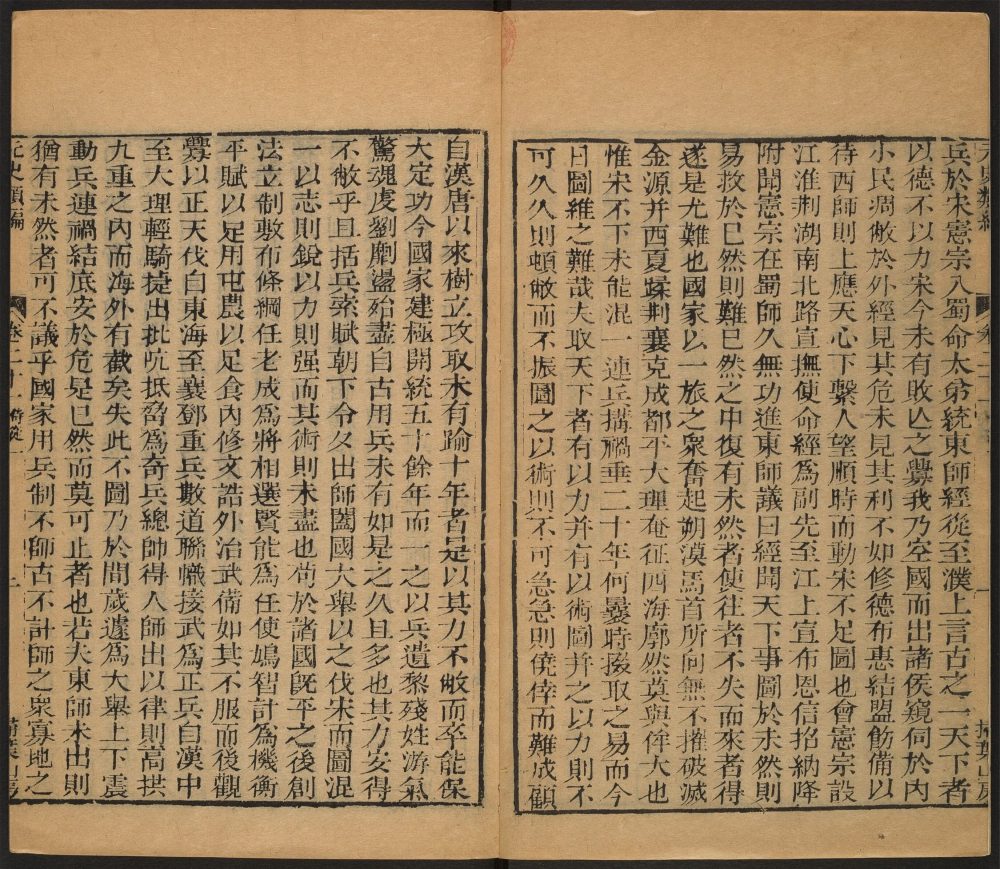 元史類編 卷二十一 掃葉山房
兵於宋憲宗入蜀命太弟統東師經從至濮上言古之一天下者
以德不以力宋今未有敗亡之釁我乃空國而出諸侯窺伺於內
小民凋敝於外經見其危未見其利不如修德布惠結盟飭備以
待西師則上應天心下繫人望順時而動宋不足圖也會憲宗設
江淮荆湖南北路宣撫使命經爲副先至江上宣布恩信招納降
附聞憲宗在蜀師久無功進東師議曰經聞天下事圖於未然則
易救於已然則難已然之中復有未然者使往者不失而來者得
遂是尤難也國家以一旅之衆奮起朔漠馬首所向無不摧破滅
金源并西夏蹂荆襄克成都平大理奄征四海廓然莫與侔大也
惟宋不下未能混一連兵搆禍垂二十年何曩時掇取之易而今
日圖維之難哉夫取天下者有以力并有以術圖并之以力則不
可久久則頓敝而不振圖之以術則不可急急則僥倖而難成顧
自漢唐以來樹立攻取未有踰十年者是以其力不敝而卒能保
大定功今國家建極開統五十餘年而一之以兵遺黎殘姓游氣
驚魂虔劉劘盪殆盡自古用兵未有如是之久且多也其力安得
不敝乎且括兵索賦朝下令夕出師闔國大舉以之伐宋而圖混
一以志則銳以力則强而其術則未盡也苟於諸國旣平之後創
法立制敷布條綱任老成爲將相選賢能爲任使鳩智計爲機衡
平賦以足用屯農以足食內修文誥外治武備如其不服而後觀
釁以正天伐自東海至襄鄧重兵數道聯幟接武爲正兵自漢中
至大理輕騎捷出批吭抵脅爲奇兵總帥得人師出以律則高拱
九重之內而海外有截矣失此不圖乃於間歲遽爲大舉上下震
動兵連禍結底安於危是已然而莫可止者也若夫東師未出則
猶有未然者可不議乎國家用兵制不師古不計師之衆寡地之
元史類編 卷二十一 二 掃葉山房